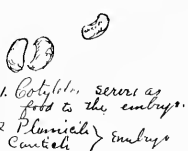 1. Cotyldn, serves as
food to the embryo.
2 Plumicili
Caulicli } Embryo